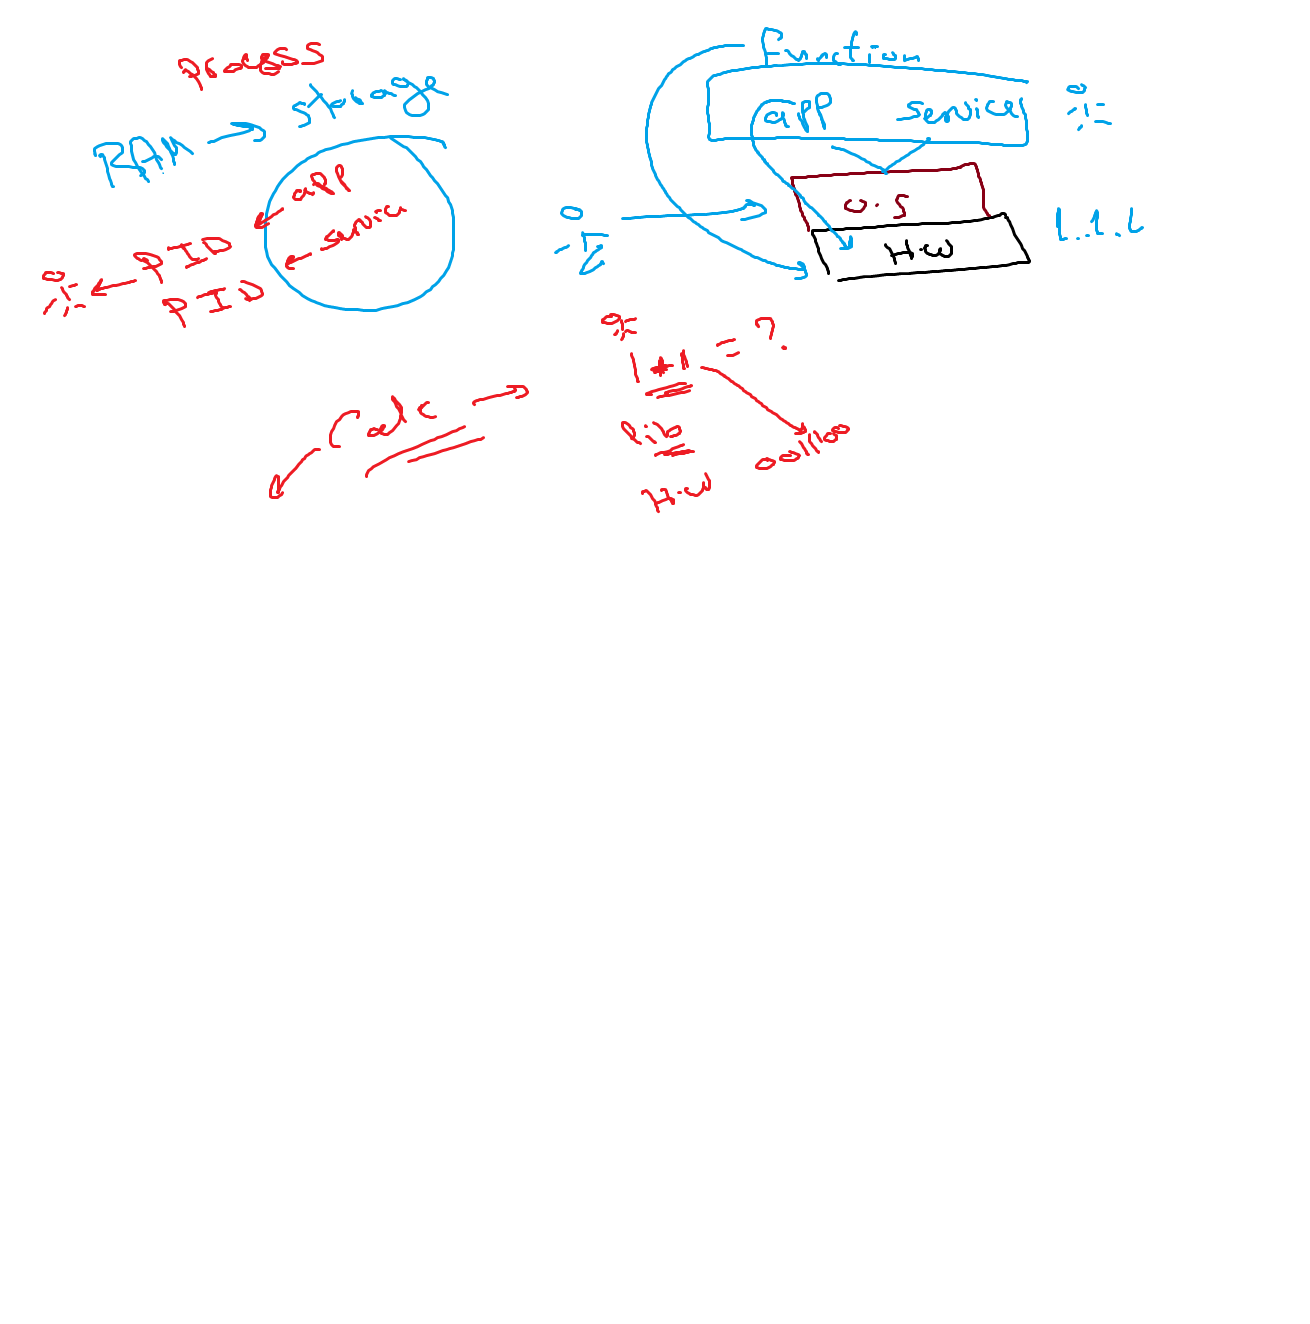 Process
RAM → storage
app
service
PID
PID
function
app service
O.S
H.W
1.1.1
1+1 = ?
Calc →
lib
0011100
H.W